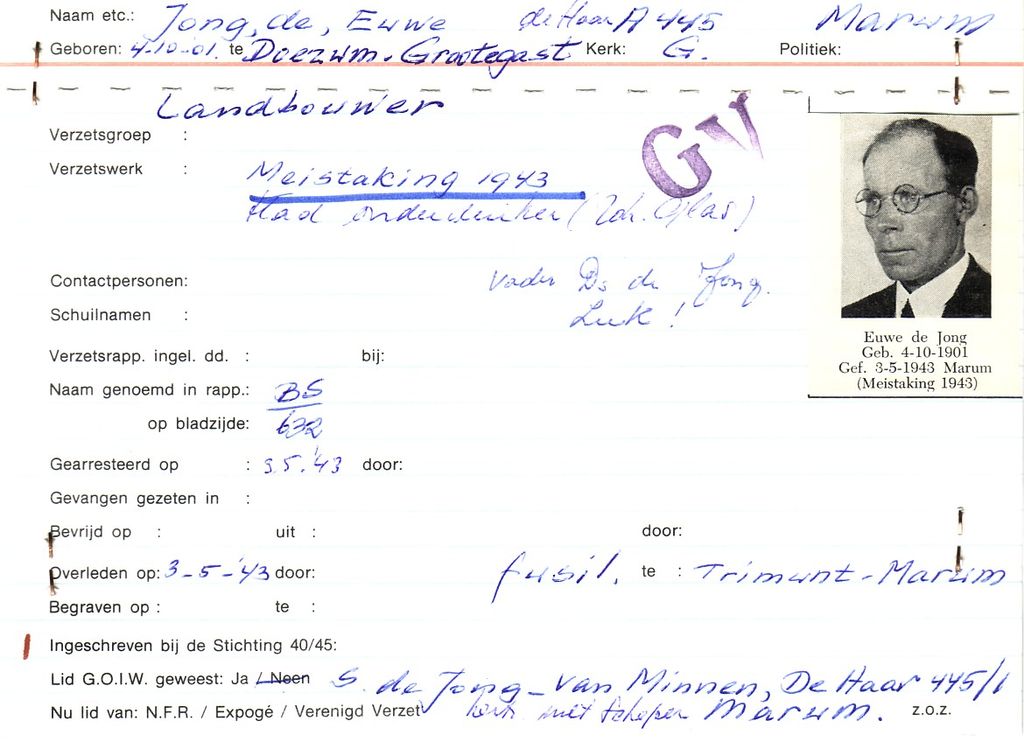 Naam etc.: Jong, de, Euwe de Haar A 445 Marum
Geboren: 4-10-01. te Doezum-Grootegast Kerk: G. Politiek:
Landbouwer
GV
Verzetsgroep :
Verzetswerk : Meistaking 1943
Had onderduiker (Joh. Glas)
Contactpersonen: vader Ds de Jong.
Schuilnamen : Luk!
Euwe de Jong
Geb. 4-10-1901
Gef. 3-5-1943 Marum
(Meistaking 1943)
Verzetsrapp. ingel. dd. : bij:
Naam genoemd in rapp.: BS
op bladzijde: 632
Gearresteerd op : 3.5.'43 door:
Gevangen gezeten in :
Bevrijd op : uit : door:
Overleden op: 3-5-'43 door: fusil. te : Trimunt-Marum
Begraven op : te :
Ingeschreven bij de Stichting 40/45:
Lid G.O.I.W. geweest: Ja / Neen S. de Jong-van Minnen, De Haar 445/1
Nu lid van: N.F.R. / Expogé / Verenigd Verzet met Marum. z.o.z.